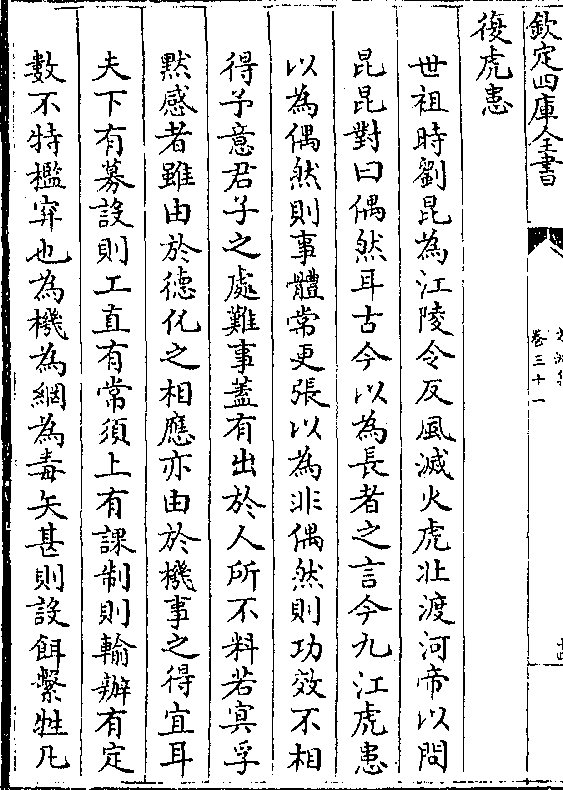 欽定四庫全書
卷三十一
復虎患
世祖時劉昆為江陵令反風滅火虎北渡河帝以問
昆昆對曰偶然耳古今以為長者之言今九江虎患
以為偶然則事體常更張以為非偶然則功效不相
得予意君子之處難事蓋有出於人所不料若㝠孚
黙感者雖由於德化之相應亦由於機事之得宜耳
夫下有募設則工直有常須上有課制則輸辦有定
數不特檻穽也為機為網為毒矢甚則設餌繫牲凡